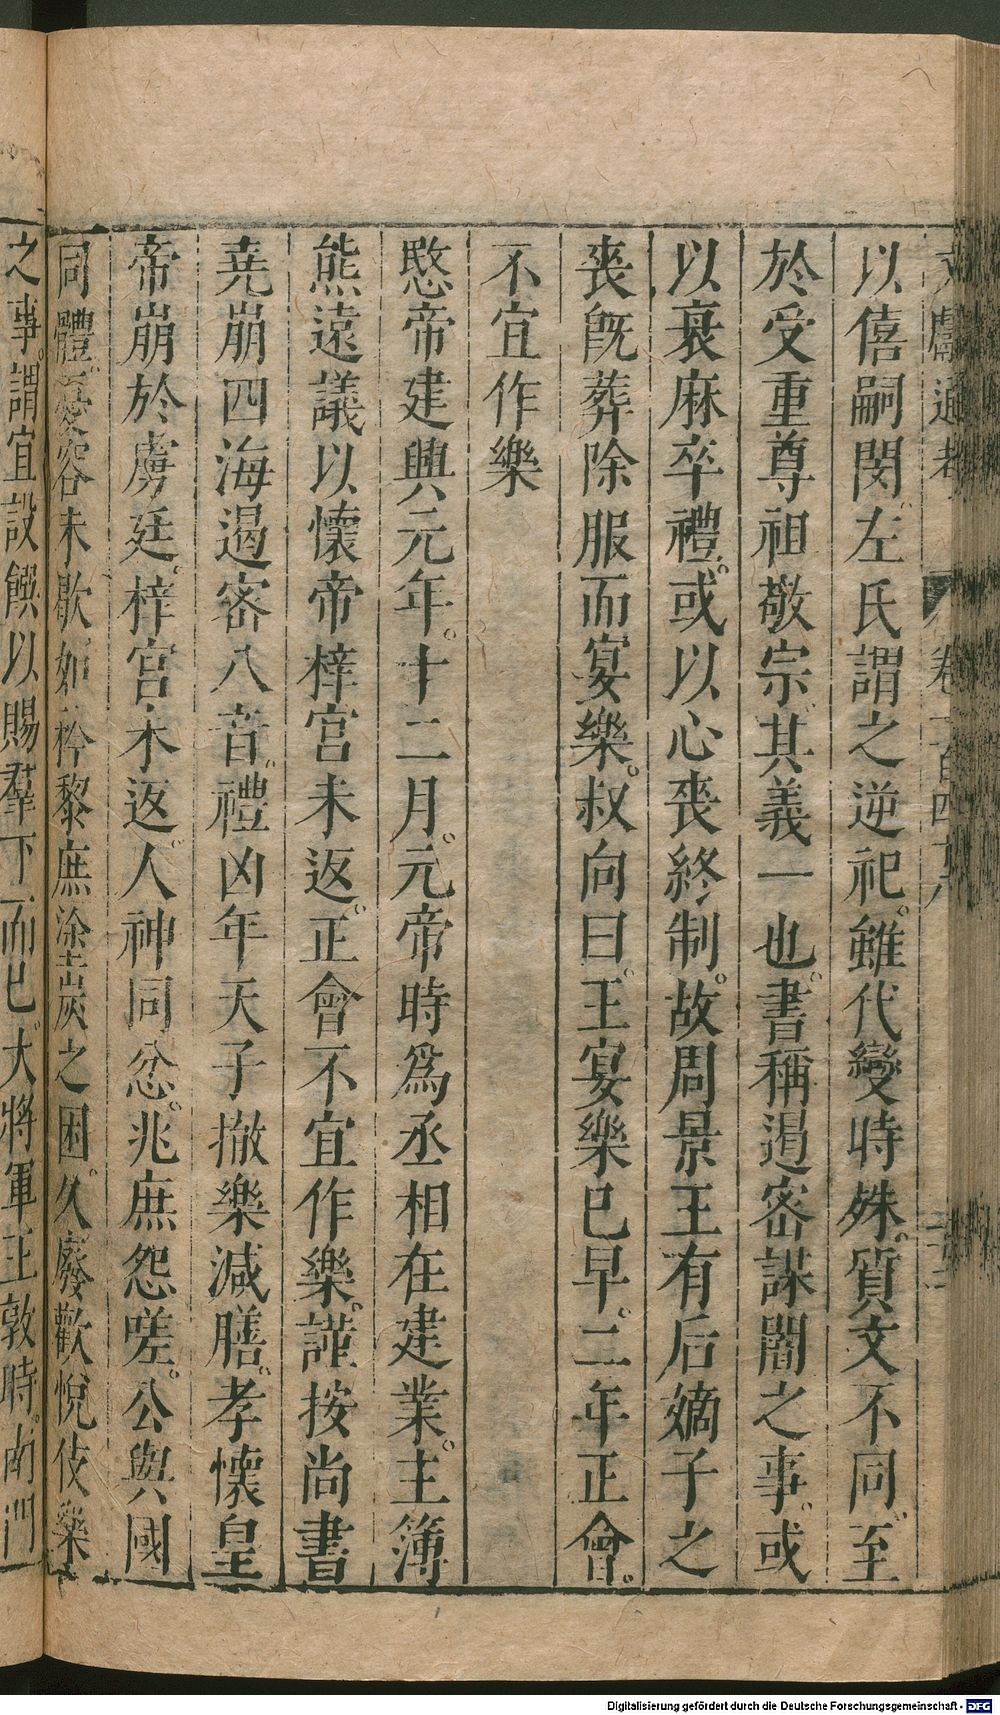 以僖嗣閔左氏謂之逆祀雖代變時殊質文不同至
於受重尊祖敬宗其義一也書稱遏密諒闇之事或
以衰麻卒禮或以心喪終制故周景王有后嫡子之
喪旣葬除服而宴樂叔向曰王宴樂已早二年正會
不宜作樂
愍帝建興元年十二月元帝時爲丞相在建業主簿
熊遠議以懷帝梓宮未返正會不宜作樂謹按尚書
堯崩四海遏密八音禮凶年天子撤樂減膳孝懷皇
帝崩於虜廷梓宮未返人神同忿兆庶怨嗟公與國
同體憂容未歇如矜黎庶塗炭之困久廢歡悅伎樂
之事謂宜設饌以賜羣下而已大將軍王敦時南門
Digitalisierung gefördert durch die Deutsche Forschungsgemeinschaft - DFG